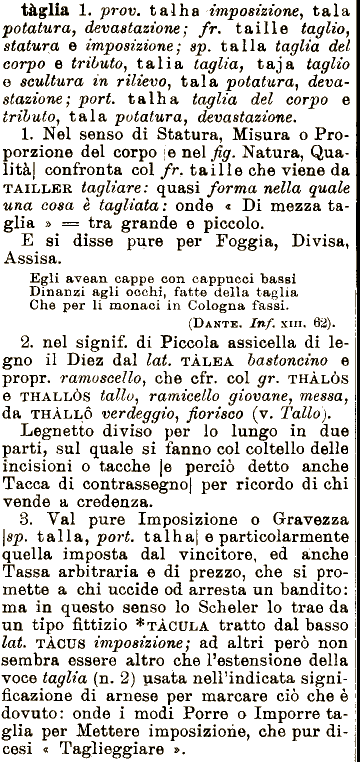 tàglia 1. prov. talha imposizione, tala
potatura, devastazione; fr. taille taglio,
statura e imposizione; sp. talla taglia del
corpo e tributo, talia taglia, taja taglio
e scultura in rilievo, tala potatura, deva-
stazione; port. talha taglia del corpo e
tributo, tala potatura, devastazione.
1. Nel senso di Statura, Misura o Pro-
porzione del corpo e nel fig. Natura, Qua-
lità| confronta col fr. taille che viene da
TAILLER tagliare: quasi forma nella quale
una cosa è tagliata: onde « Di mezza ta-
glia » = tra grande e piccolo.
E si disse pure per Foggia, Divisa,
Assisa.
Egli avean cappe con cappucci bassi
Dinanzi agli occhi, fatte della taglia
Che per li monaci in Cologna fassi.
(DANTE. Inf. XIII. 62).
2. nel signif. di Piccola assicella di le-
gno il Diez dal lat. TÀLEA bastoncino e
propr. ramoscello, che cfr. col gr. THÀLÒS
e THALLÒS tallo, ramicello giovane, messa,
da THÀLLÔ verdeggio, fiorisco (v. Tallo).
Legnetto diviso per lo lungo in due
parti, sul quale si fanno col coltello delle
incisioni o tacche |e perciò detto anche
Tacca di contrassegno| per ricordo di chi
vende a credenza.
3. Val pure Imposizione o Gravezza
|sp. talla, port. talha| e particolarmente
quella imposta dal vincitore, ed anche
Tassa arbitraria e di prezzo, che si pro-
mette a chi uccide od arresta un bandito:
ma in questo senso lo Scheler lo trae da
un tipo fittizio *TÀCULA tratto dal basso
lat. TÀCUS imposizione; ad altri però non
sembra essere altro che l'estensione della
voce taglia (n. 2) usata nell'indicata signi-
ficazione di arnese per marcare ciò che è
dovuto: onde i modi Porre o Imporre ta-
glia per Mettere imposizione, che pur di-
cesi « Taglieggiare ».